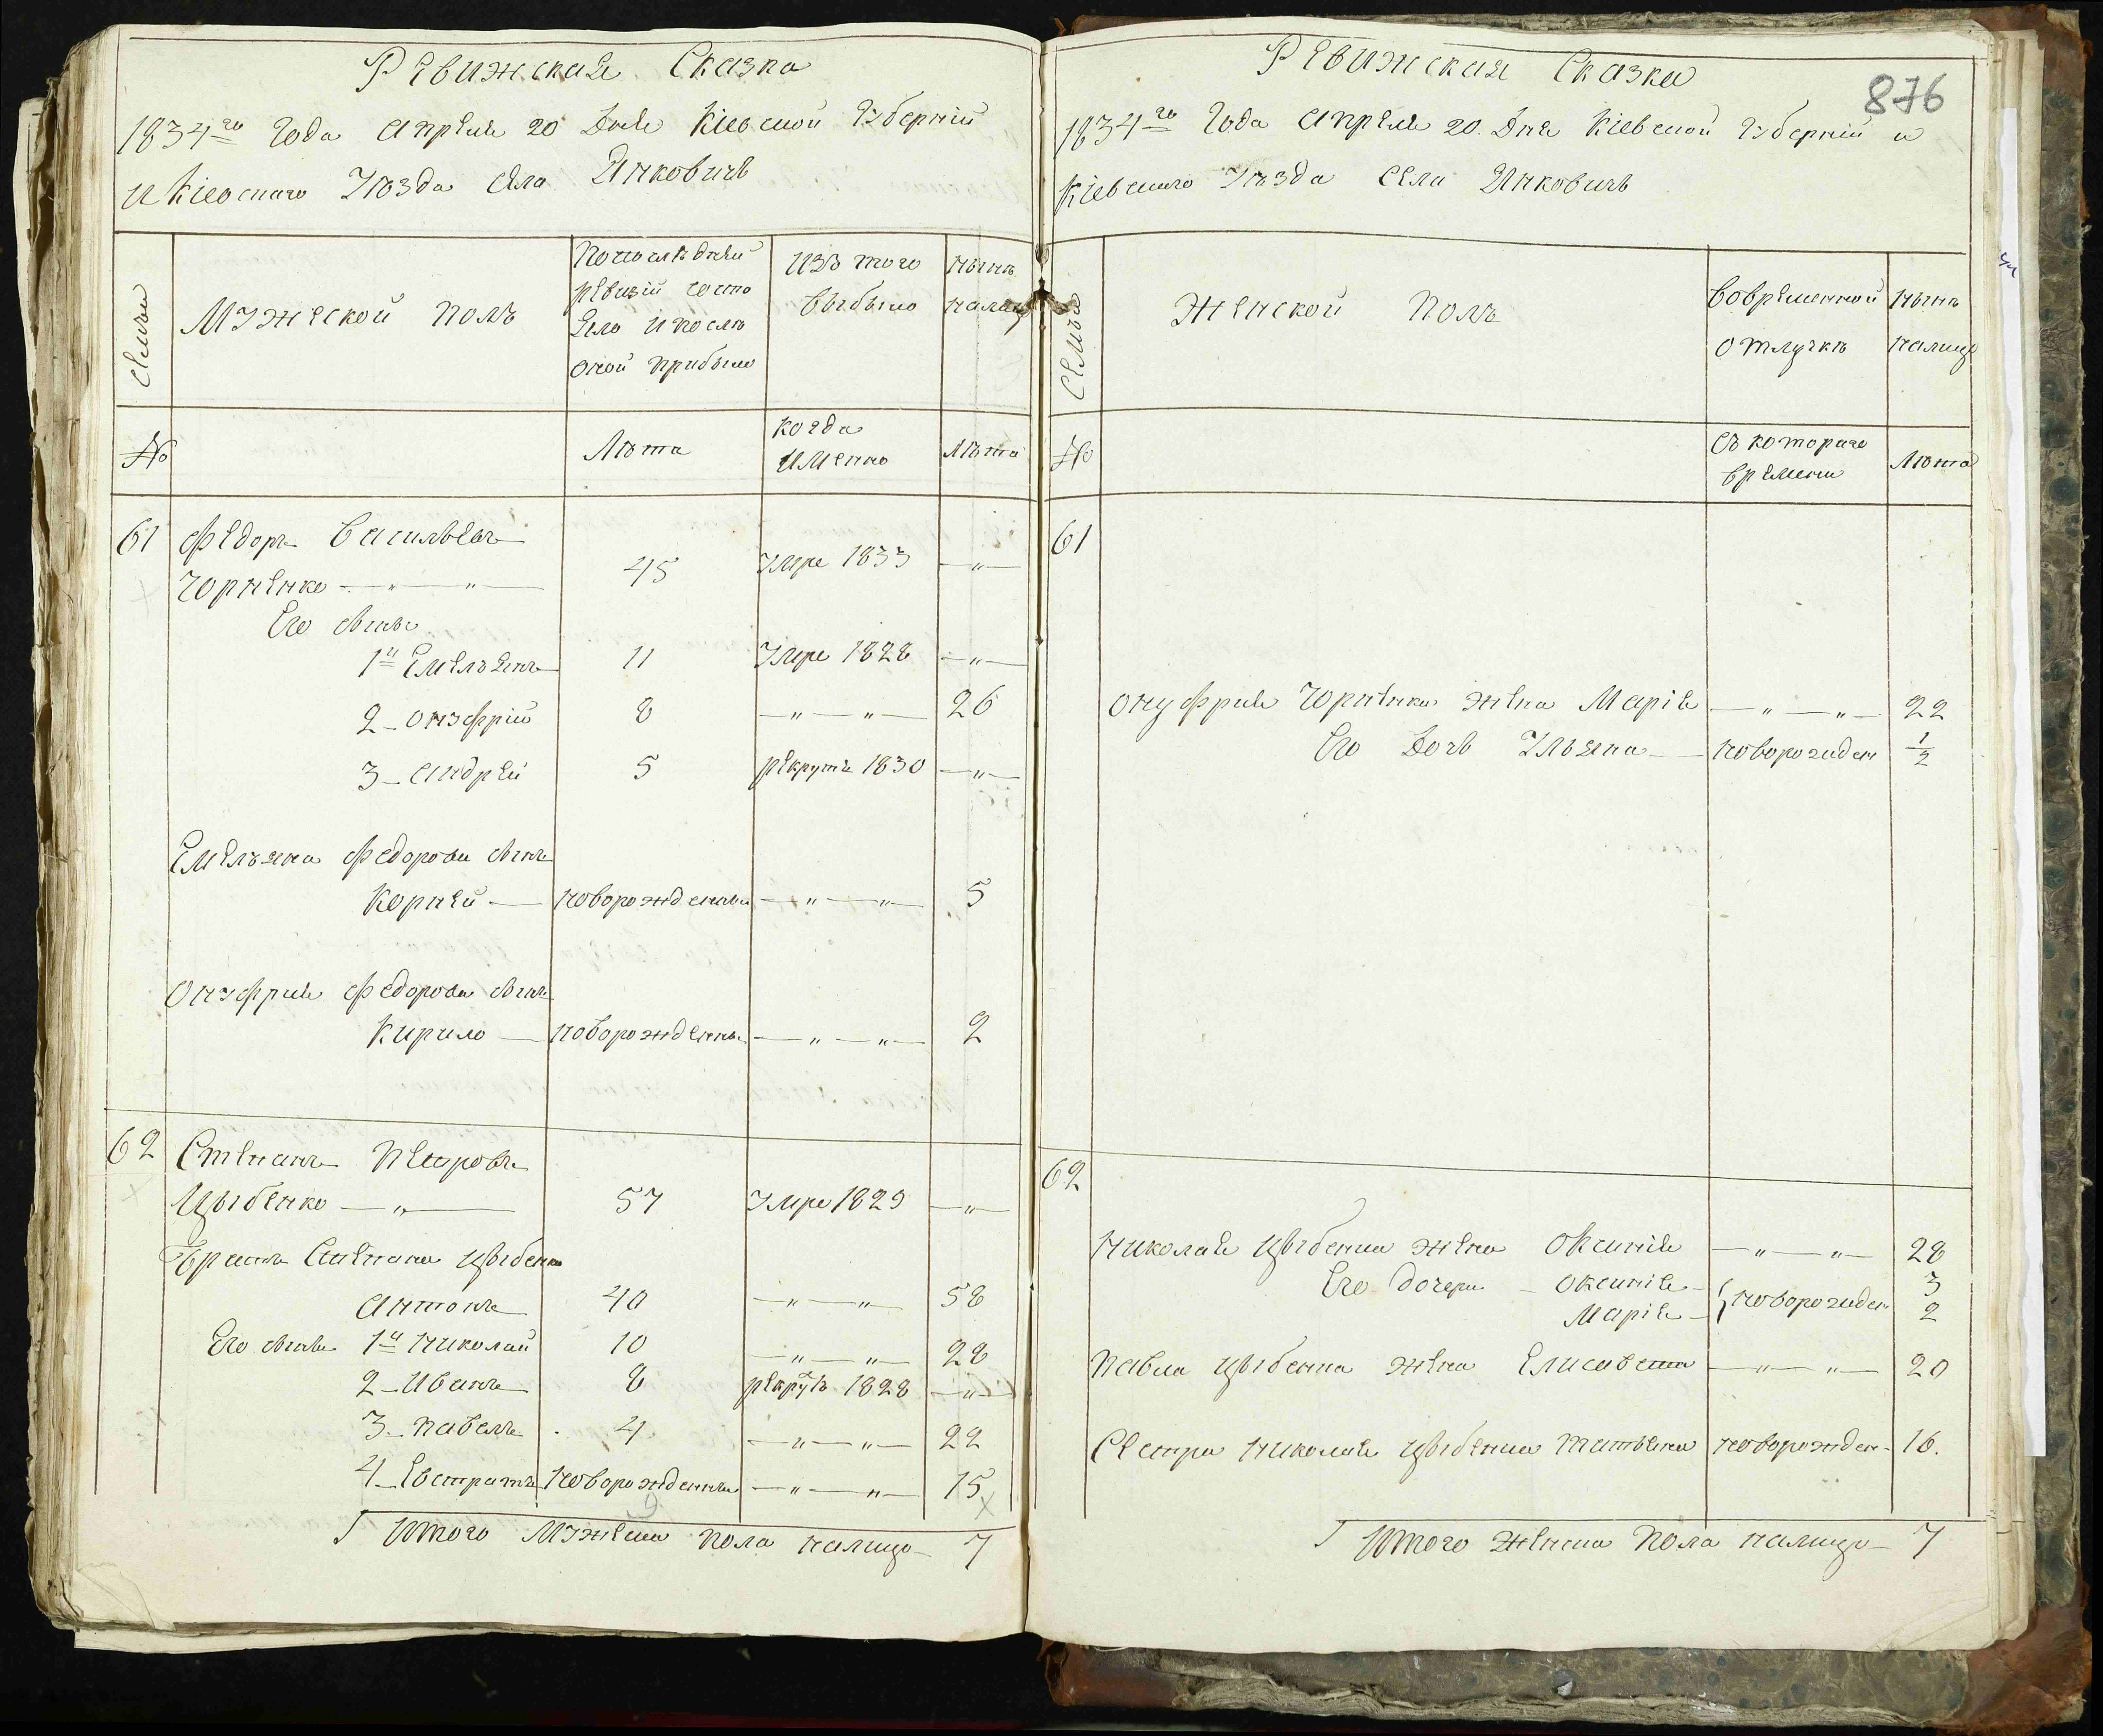 Ревижская Сказка
1834го Года Апреля 20 Дня Кіевской Губерній
и Кіевскаго Уѣзда Села Янковичь
Семьи
Мужеской полъ
По последней
ревизіи состо
яло и после
оной прибыло
изъ того
выбыло
нынѣ
налицо
№
Лѣта
когда
именно
Лѣта
61 Федоръ Васильевъ
Чорненко — " — " — 45 Умре 1833 — " —
Его сыны
1й Емельянъ 11 Умре 1828 — " —
2 — Онуфрій 8 — " — " — 26
3 — Андрей 5 рекрутъ 1830 — " —
Емельяна Федорова сынъ
Корней — новорожденны — " — " — 5
Онуфрия Федорова сынъ
Кирило — новорожденны — " — " — 2
62 Степанъ Петровъ
Цыбенко — " — 57 Умре 1829 — " —
Братъ Степана Цыбенка
Антонъ 40 — " — " — 58
Его сыны 1й Николай 10 — " — " — 28
2 — Иванъ 8 рекрутъ 1828 — " —
3 — Павелъ 4 — " — " — 22
4 — Евстратъ новорожденны — " — " — 15
Итого Мужеска пола налицо — 7
Ревижская Сказка
876
1834го Года Апреля 20 Дня Кіевской Губерній и
Кіевскаго Уѣзда Села Янковичь
Семьи
Женской Полъ
Вовременной
отлучкѣ
нынѣ
налицо
№
съ котораго
времени
Лѣта
61
Онуфрия Чорненка жена Марія — " — " — 22
Его Дочь Ульяна — новорожден 1/2
62
Николая Цыбенка жена Оксинія — " — " — 28
Его дочери — Оксинія — 3
Марія — { новорожден 2
Павла Цыбенка жена Елисавета — " — " — 20
Сестра Николая Цыбенка Татьяна новорожден — 16.
Итого Женска Пола налицо — 7